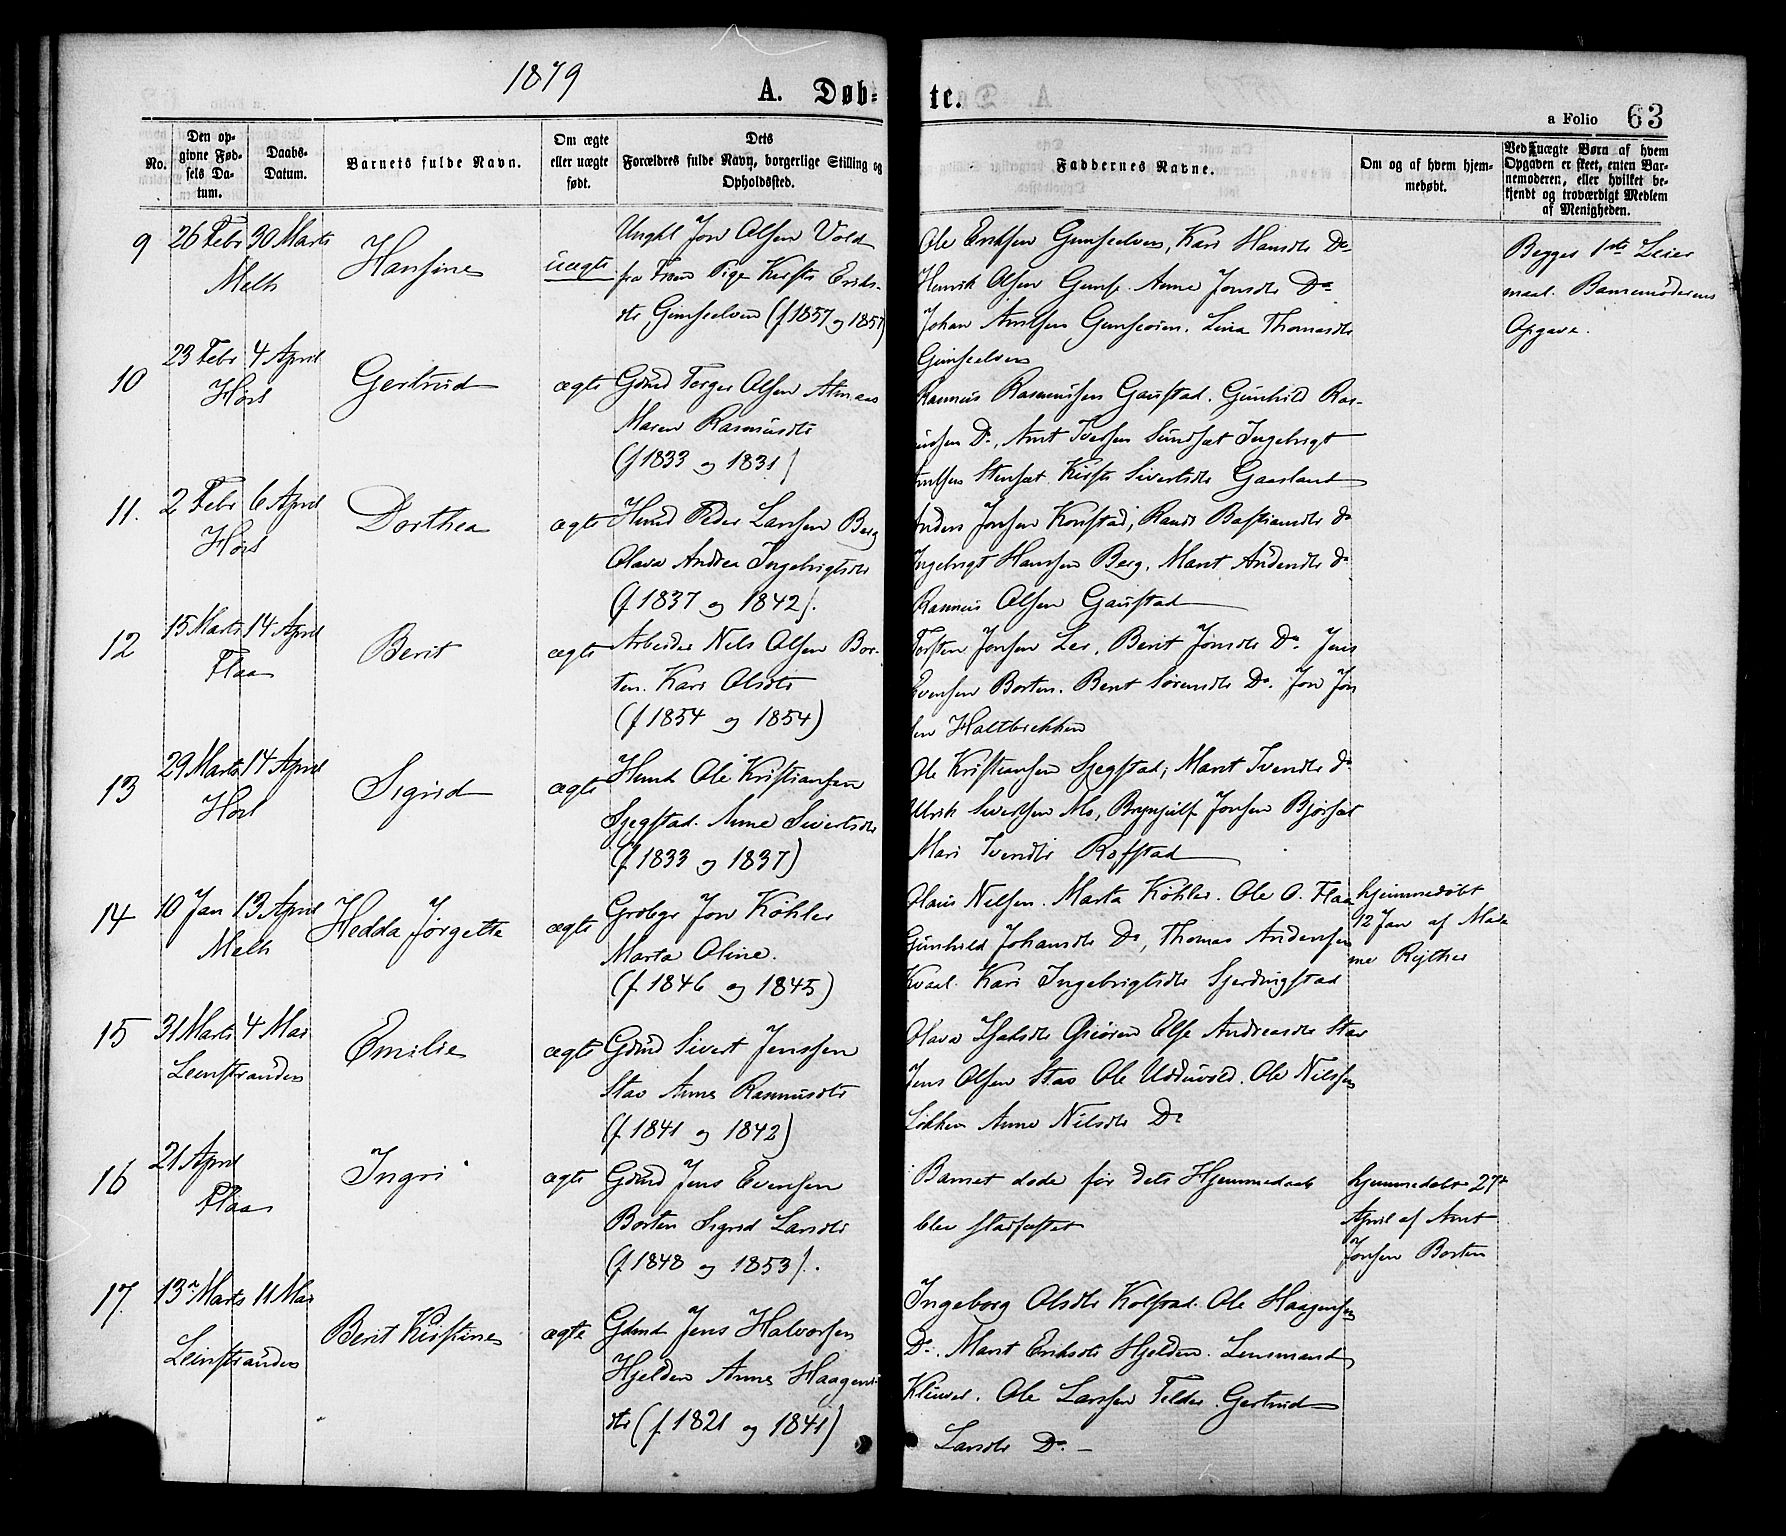 1879
A. Døb-
te.
a Folio 63
No.
Den op-
givne Fød-
sels Da-
tum.
Daabs-
Datum.
Barnets fulde Navn.
Om ægte
eller uægte
født.
Dets
Forældres fulde Navn, borgerlige Stilling og
Opholdssted.
Faddernes Navne.
Om og af hvem hjem-
medøbt.
Ved uægte Børn af hvem
Opgaven er skeet, enten Bar-
nemoderen, eller hvilket be-
kjendt og troværdigt Medlem
af Menigheden.
9
26 Febr 30 Marts
Melh
Hansine
uægte
Ungkl Jon Olsen Vold
fra Pige Kirsti Eriks-
dtr Gimseelven (f 1857 og 1857)
Ole Eriksen Gimseelven, Kari Hansdtr Do
Henrik Olsen Gimse. Anne Jonsdtr Do
Johan Arntsen Gimseoien. Lina Thomasdtr
Gimseelven
Begges 1ste Leier
maal. Barnemoderens
Opgave.
10
23 Febr 4 April
Horl
Gertrud
ægte
Gdmd Torger Olsen
Maren Rasmusdtr
(f 1833 og 1831)
Rasmus Rasmussen Gaustad. Gunhild Ras-
mussen Do, Arnt Iversen Sundsæt Ingebrigt
Arntsen Stensæt Kirsti Sivertsdtr Gaasland
11.
2 Febr 6 April
Horl
Dorthea
ægte
Hmd Peder Larssen Berg
Olava Andrea Ingebrigtsdtr
(f. 1837 og 1842).
Anders Jonsen Konstad, Randi Bastiansdtr do
Ingebrigt Hanssen Berg, Marit Andersdtr do
Rasmus Olsen Gaustad
12
15 Marts 14 April
Flaa
Berit
ægte
Arbeider Nils Olsen Bor-
ten. Kari Olsdtr
(f 1854 og 1854)
Torsten Jonsen Ler, Berit Jonsdtr Do. Jens
Evensen Borten. Berit Sørensdtr Do. Jon Jon
sen Haltbrekken
13
29 Marts 14 April
Horl
Sigrid
ægte
Hmd Ole Kristiansen
Sjegstad. Anne Sivertsdtr
(f. 1833 og 1837)
Ole Kristiansen Sjegstad, Marit Iversdtr do
Ulrik Sivertsen Mo, Brynjulf Jonsen Bjørsæt
Mari Iversdtr Rofstad
14
10 Jan 13 April
Melh
Hedda Jørgette
ægte
Grdbgr Jon Köhler
Marta Oline.
(f. 1846 og 1845)
Olaus Nilsen. Marta Köhler. Ole O. Flaa
Gunhild Johansdtr Do, Thomas Andersen
Kvaal. Kari Ingebrigtsdtr Gjerdingstad
hjemmedøbt
12 Jan af Mada
me Rijther
15
31 Marts 4 Mai
Leinstranden
Emilie
ægte
Gdmd Sivert Jenssen
Stav Anne Rasmusdtr
(f. 1841 og 1842)
Olava Else Andreasdtr Stav
Jens Olsen Stav Ole Udduvold. Ole Nilssen
Løkken Anne Nilsdtr Do
16
21 April
Flaa
Ingri
ægte
Gdmd Jens Evensen
Borten Sigrid Larsdtr
(f 1848 og 1853).
Barnet døde før dets Hjemmedaab
blev stadfæstet
hjemmedøbt 27de
April af Arnt
Jonsen Borten
17.
13 Marts 11 Mai
Leinstranden
Berit Kirstine
ægte
Gdmd Jens Halvorsen
Hjelden Anne Haagens-
dtr (f 1821 og 1841)
Ingeborg Olsdtr Kolstad. Ole Haagensen
Do. Marit Eriksdtr Hjelden. Lensmand
Klüwer. Ole Larssen Telder. Gertrud
Larsdtr Do. –